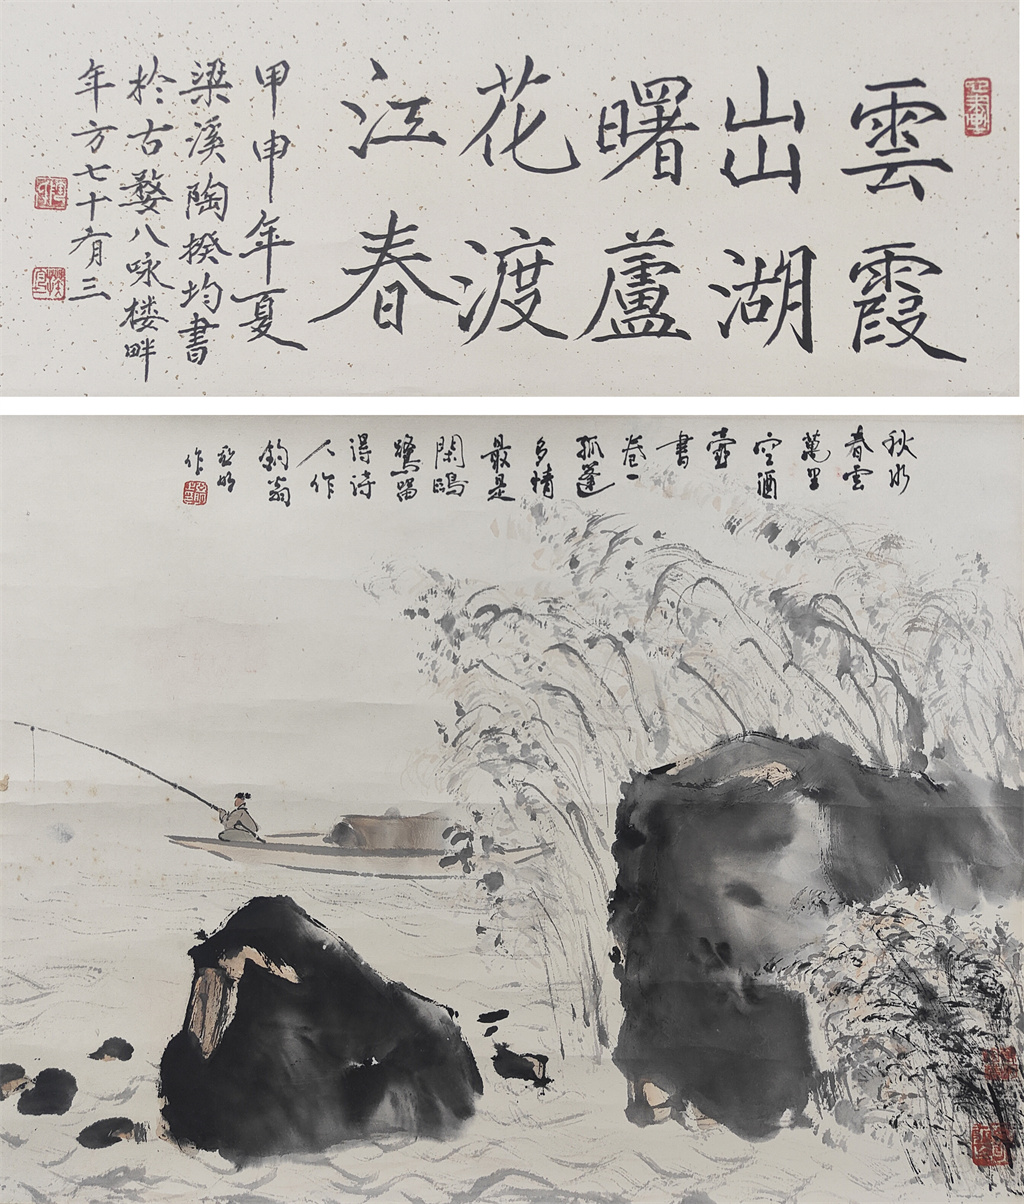 雲霞
出湖
曙蘆
花渡
江春
甲申年夏
梁溪陶揆均書
於古婺八咏楼畔
年方七十有三
秋水
春雲
萬里
空酒
壺
書
卷一
孤蓬
多情
最是
閑鷗
鷺留
得詩
人作
釣翁
亞明
作